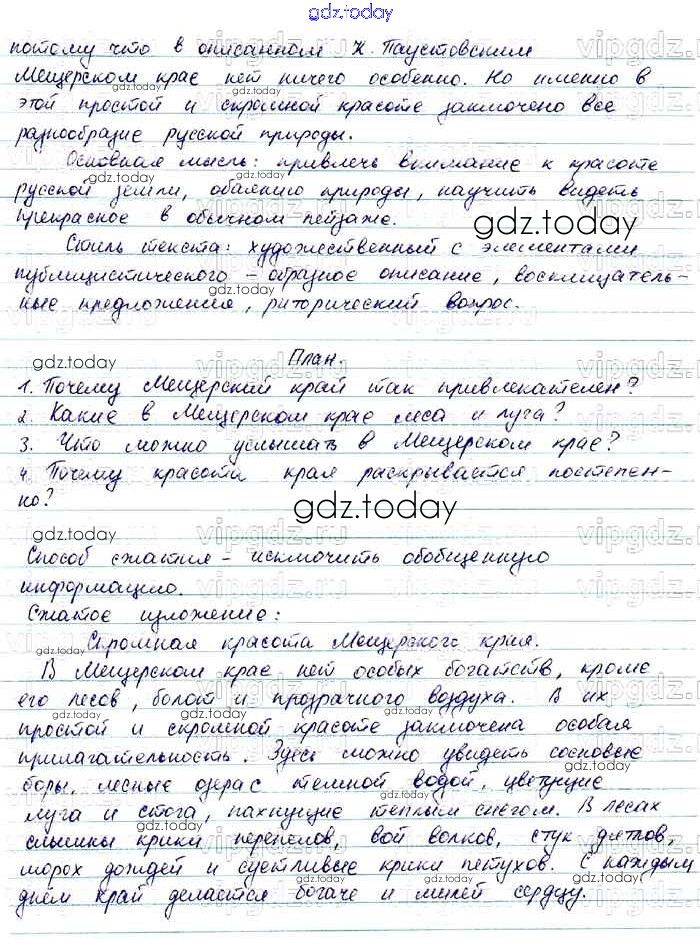 gdz.today
потому что в описанном К. Паустовским
Мещерском крае нет ничего особенно. Но именно в
этой простой и скромной красоте заключено все
разнообразие русской природы.
Основная мысль: привлечь внимание к красоте
русской земли, обаянию природы, научить видеть
прекрасное в обычном пейзаже.
gdz.today
Стиль текста: художественный с элементами
публицистического – образное описание, восклицатель-
ные предложения, риторический вопрос.
План.
1. Почему Мещерский край так привлекателен?
2. Какие в Мещерском крае леса и луга?
3. Что можно услышать в Мещерском крае?
4. Почему красота края раскрывается постепен-
но?
gdz.today
Способ сжатия – исключить обобщенную
информацию.
Сжатое изложение:
Скромная красота Мещерского края.
В Мещерском крае нет особых богатств, кроме
его лесов, болот и прозрачного воздуха. В их
простой и скромной красоте заключена особая
прилагательность. Здесь можно увидеть сосновые
боры, лесные озера с темной водой, цветущие
луга и стога, пахнущие теплым снегом. В лесах
слышны крики перепелов, вой волков, стук дятлов,
шорох дождей и суетливые крики петухов. С каждым
днем край делается богаче и милей сердцу.